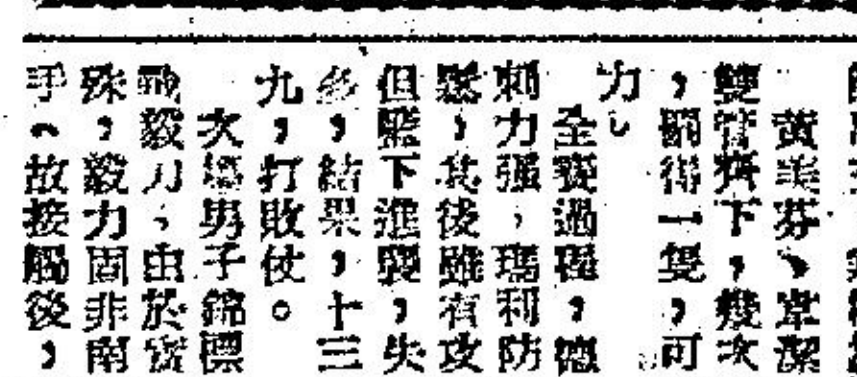 黃美芬、韋潔
雙管齊下，幾次
，關得一隻，可
力」
全賽過程，德
刺力強，瑪利防
鬆，其後雖有攻
但籃下進襲，失
多，結果，十三
九，打敗仗。
次場男子錦標
戰毅刀，由於實
殊，毅力固非南
手，故接觸後，